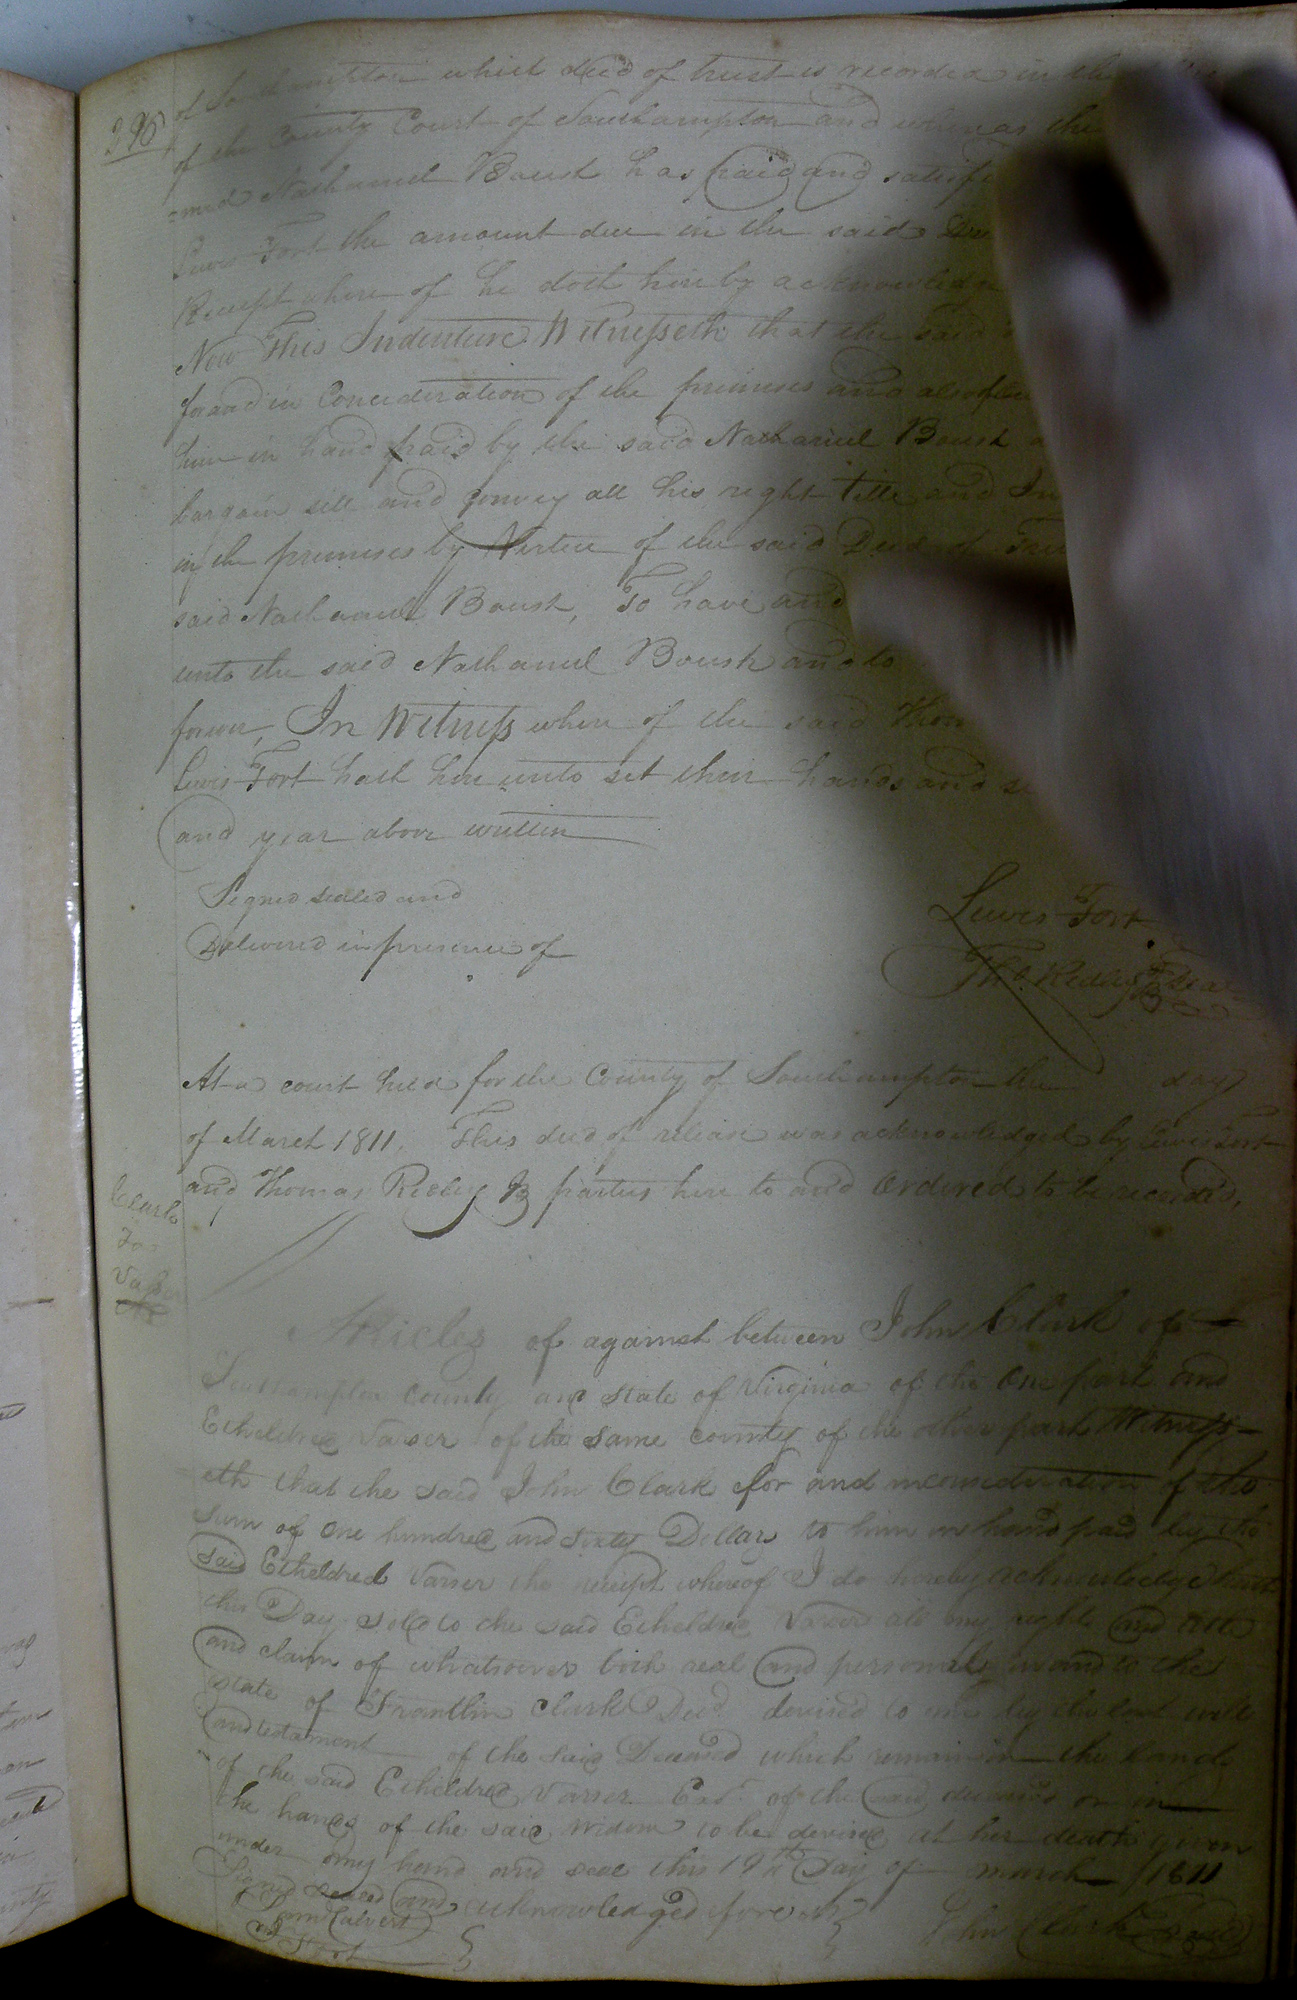 296
of Southampton which deed of trust is recorded in the
of the County Court of Southampton and whereas the
Nathaniel Boush has paid and satisfi
Lewis Fort the amount due in the said Dee
Receipt where of he doth hereby acknowledge
Now This Indenture Witnesseth that the said
for and in Concideration of the premises and also of
him in hand paid by the said Nathaniel Boush a
bargain sell and convey all his right title and In
in the premises by Virtue of the said Deed of Tru
said Nathaniel Boush, To have and
unto the said Nathaniel Boush and to
forever, In Witness where of the said Thom
Lewis Fort hath here unto set their hands and se
and year above written
Signed sealed and
Delivered in presence of
Lewis Fort
Tho. Ridley Jr Seal
At a court held for the County of Southampton the day
of March 1811. This deed of release was acknowledged by Lewis Fort
and Thomas Ridley Jr parties here to and Ordered to be recorded.
Clark
To
Vasser
Articles of agament between John Clark of
Southampton County and State of Virginia of the One part and
Etheldred Vasser of the Same county of the other part Witness-
eth that the said John Clark for and inconsideration of the
Sum of One hundred and Sixty Dollars to him in hand paid by the
said Etheldred Vasser the receipt whereof I do hereby acknowledge have
this Day sold to the said Etheldred Vasser all my right and title
and claim of whatsoever both real and personal in and to the
state of Franklin Clark Decd. devised to me by the last will
and testament of the said Deceased which remain in the hands
of the said Etheldred Vasser Exd of the said deceased or in
the hands of the said widow to be devised at her death given
under my hand and seal this 19th Day of march 1811
Signed sealed and acknowledged before us
Calvert
John Clark Seal
Fort